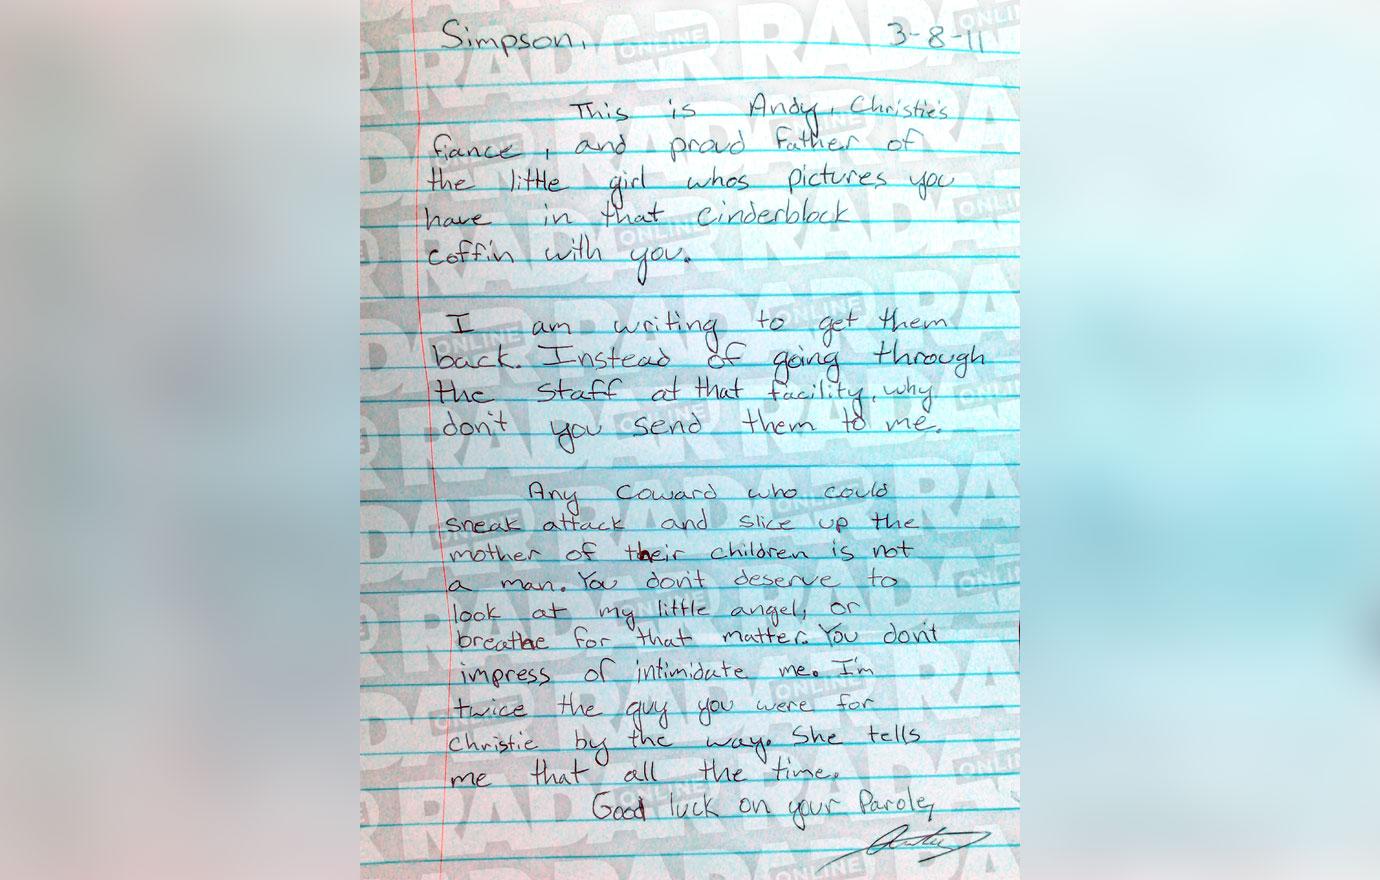 Simpson, 3-8-11
This is Andy, Christie's
fiance, and proud Father of
the little girl whos pictures you
have in that cinderblock
coffin with you.
I am writing to get them
back. Instead of going through
the staff at that facility, why
don't you send them to me.
Any coward who could
sneak attack and slice up the
mother of their children is not
a man. You don't deserve to
look at my little angel, or
breathe for that matter. You don't
impress of intimidate me. I'm
twice the guy you were for
christie by the way. She tells
me that all the time.
Good luck on your Parole,
RADAR ONLINE